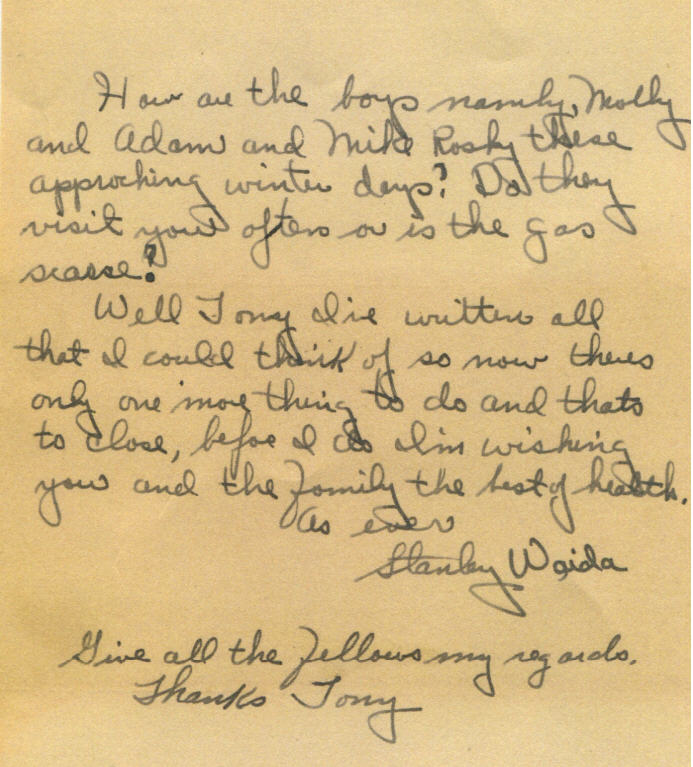 How are the boys namly, Molly
and Adam and Mike Rosky these
approching winter days? Do they
visit you often or is the gas
scarse?
Well Tony I've written all
that I could think of so now theres
only one more thing to do and thats
to close, befoe I do I'm wishing
you and the family the best of health.
As ever
Stanley Waida
Give all the fellows my regards.
Thanks Tony